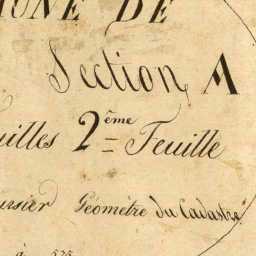 UNE DE
Section A
uilles 2ème Feuille
ursier Géomètre du Cadastre
à